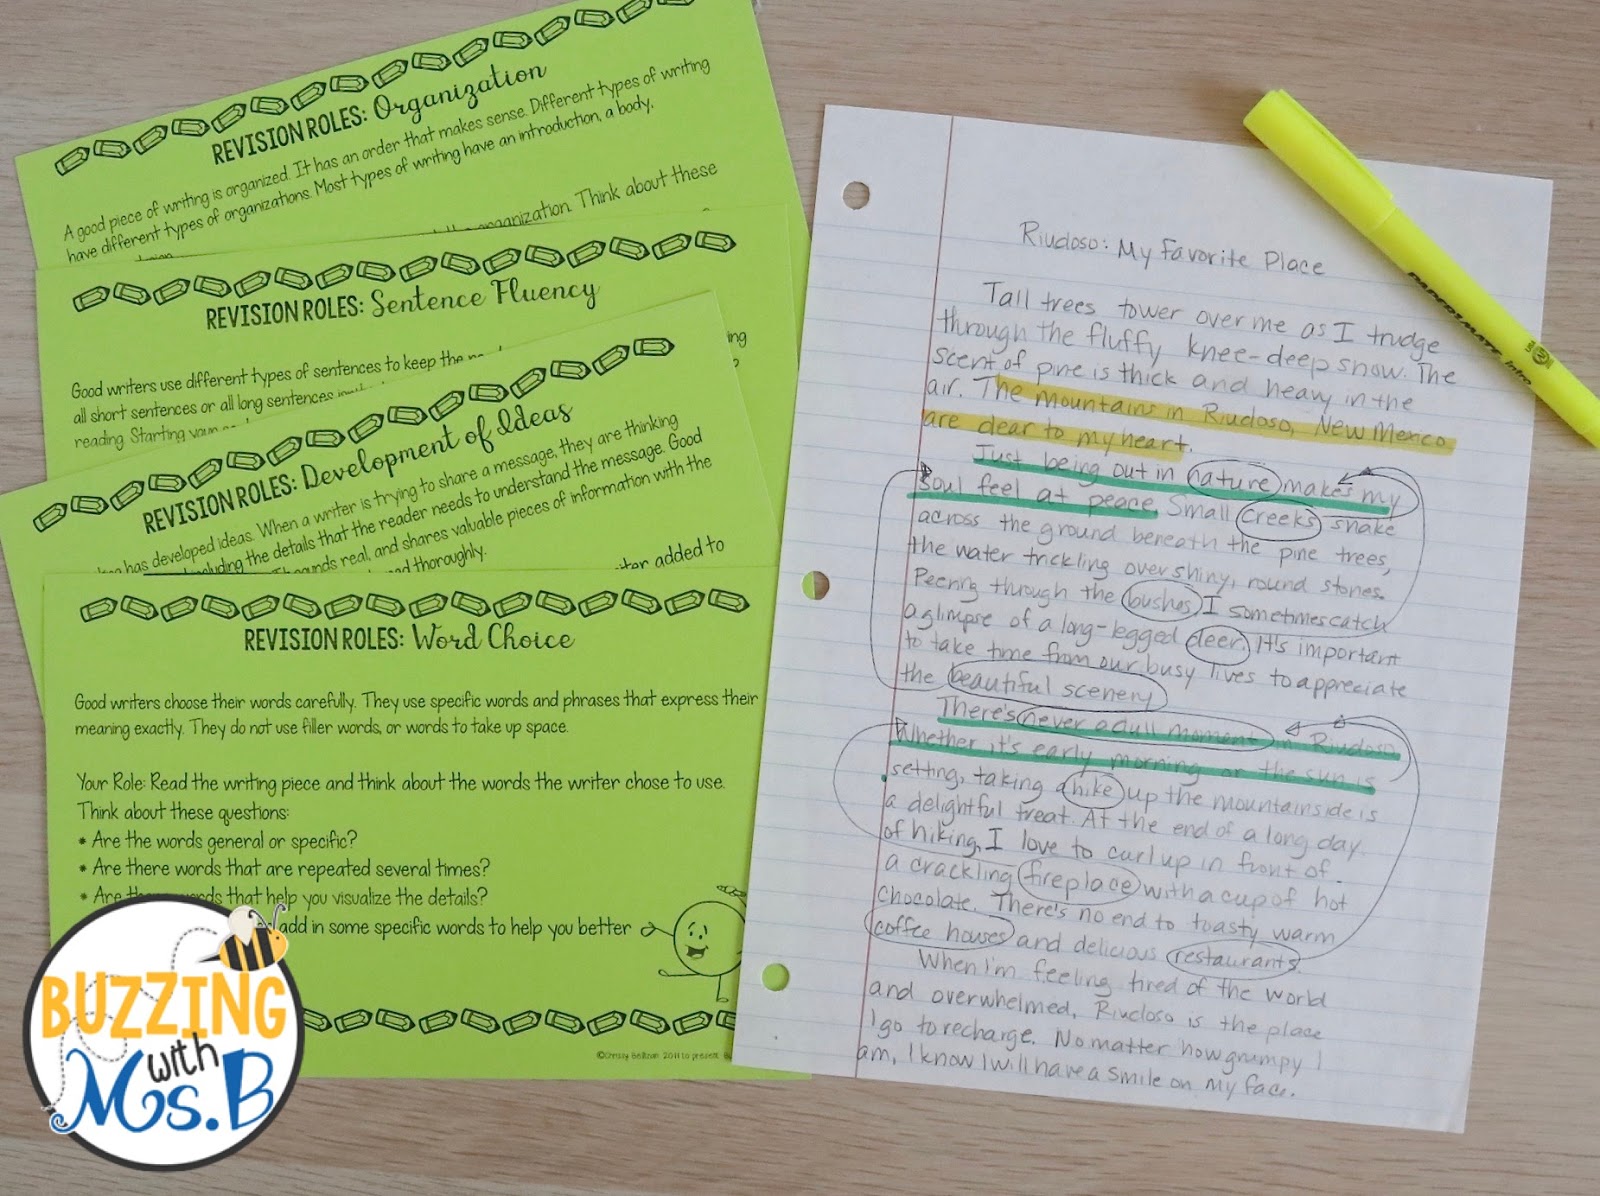 REVISION ROLES: Organization
A good piece of writing is organized. It has an order that makes sense. Different types of writing
have different types of organizations. Most types of writing have an introduction, a body,
organization. Think about these
REVISION ROLES: Sentence Fluency
Good writers use different types of sentences to keep the
all short sentences or all long sentences
reading. Starting
REVISION ROLES: Development of Ideas
has developed ideas. When a writer is trying to share a message, they are thinking
including the details that the reader needs to understand the message. Good
sounds real, and shares valuable pieces of information with the
thoroughly.
added to
REVISION ROLES: Word Choice
Good writers choose their words carefully. They use specific words and phrases that express their
meaning exactly. They do not use filler words, or words to take up space.
Your Role: Read the writing piece and think about the words the writer chose to use.
Think about these questions:
* Are the words general or specific?
* Are there words that are repeated several times?
* Are that help you visualize the details?
add in some specific words to help you better
©Chrissy Beltran 2011 to present.
BUZZING
with
Ms.B
Riudoso: My Favorite Place
Tall trees tower over me as I trudge
through the fluffy knee-deep snow. The
scent of pine is thick and heavy in the
air. The mountains in Riudoso, New Mexico
are dear to my heart.
Just being out in nature makes my
soul feel at peace. Small creeks snake
across the ground beneath the pine trees,
the water trickling over shiny, round stones.
Peering through the bushes, I sometimes catch
a glimpse of a long-legged deer. It's important
to take time from our busy lives to appreciate
the beautiful scenery.
There's never a dull moment in Riudoso.
Whether it's early morning or the sun is
setting, taking a hike up the mountainside is
a delightful treat. At the end of a long day
of hiking, I love to curl up in front of
a crackling fireplace with a cup of hot
chocolate. There's no end to toasty warm
coffee houses and delicious restaurants.
When I'm feeling tired of the world
and overwhelmed, Riudoso is the place
I go to recharge. No matter how grumpy I
am, I know I will have a smile on my face.
PAPERMATE intro
USA
AP